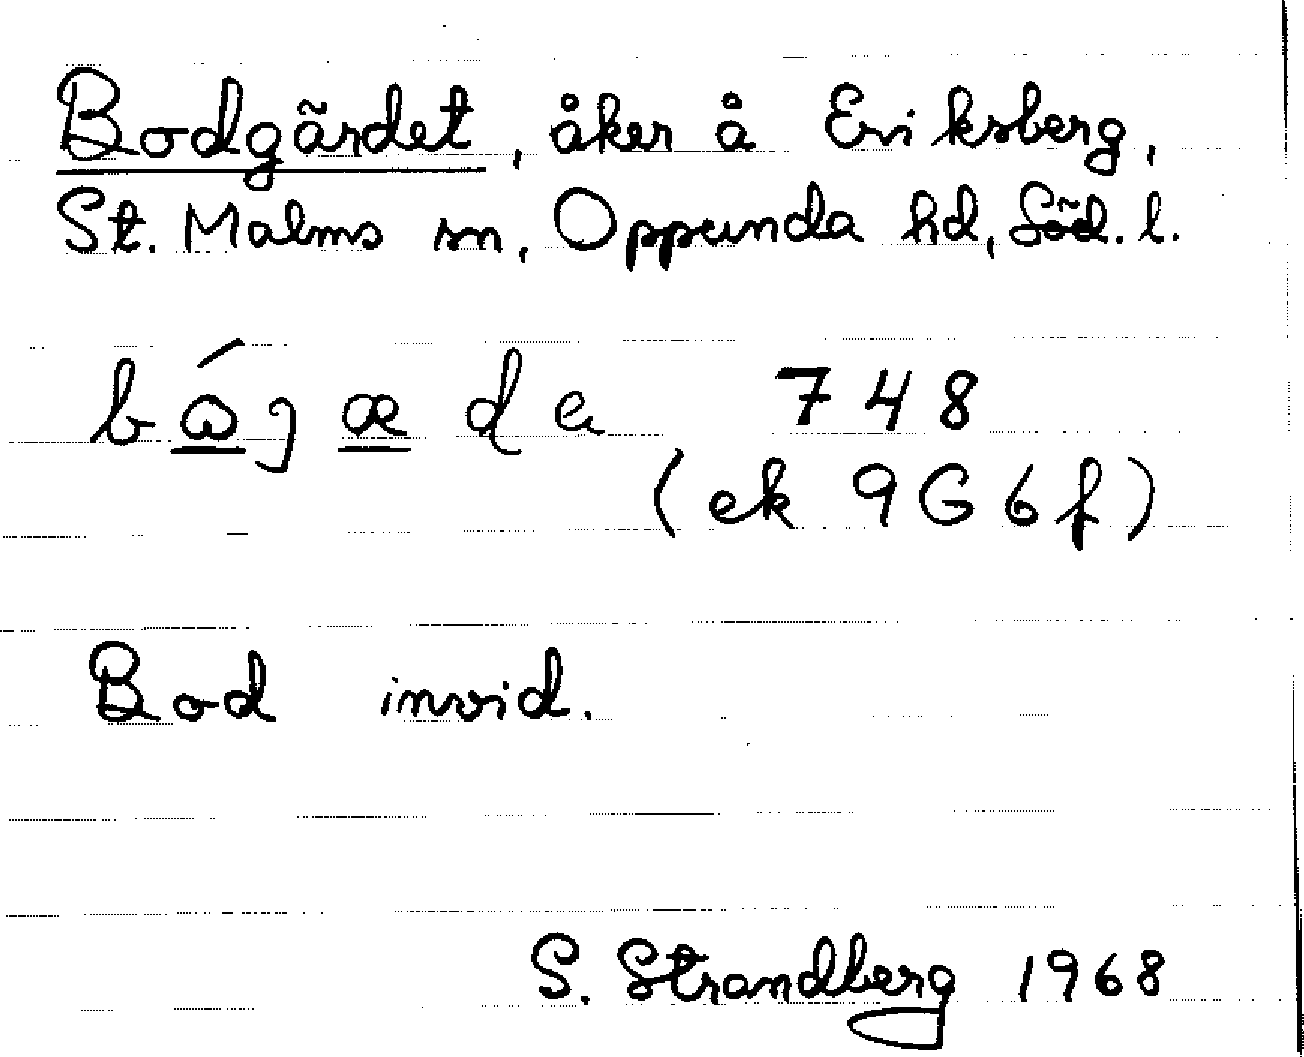 Bodgärdet, åker å Eriksberg,
St. Malms sn, Oppunda hd, Söd. l.
748
(ek 9G6f)
Bod invid.
S. Strandberg 1968